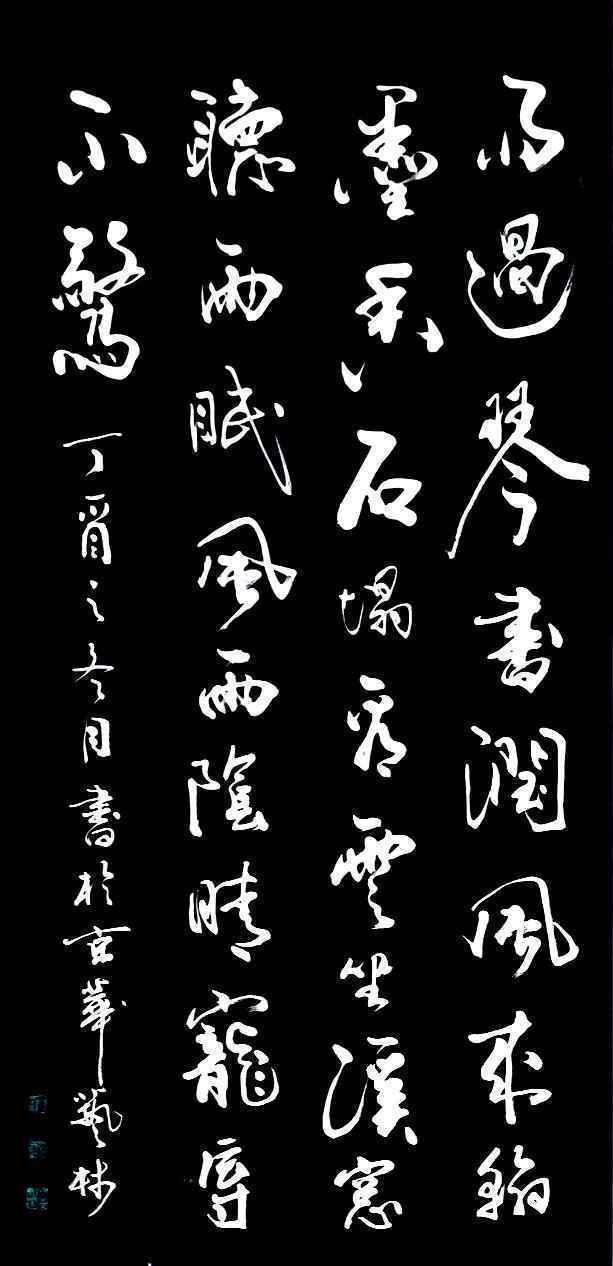 雨過琴書潤風來翰
墨香石塌看雲坐溪窓
聽雨眠風雨陰晴寵辱
不驚丁酉之冬月書於京華藝林